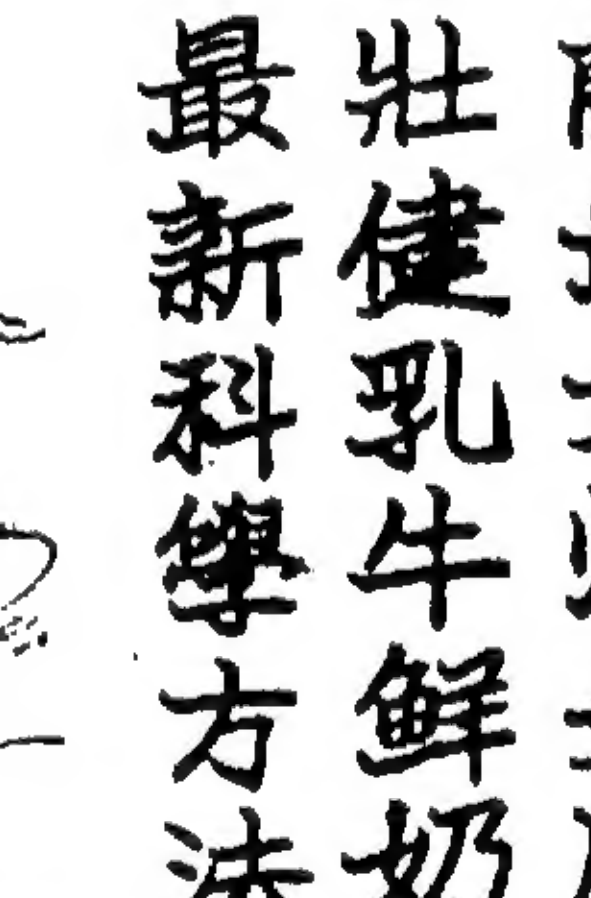 壯健乳牛鮮奶
最新科學方法